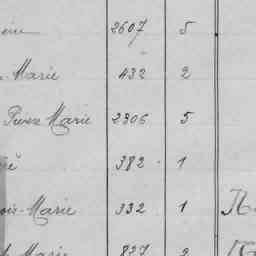 2607 5
Marie 432 2
Marie 2306 5
382 1
Marie 332 1
Marie 827 2